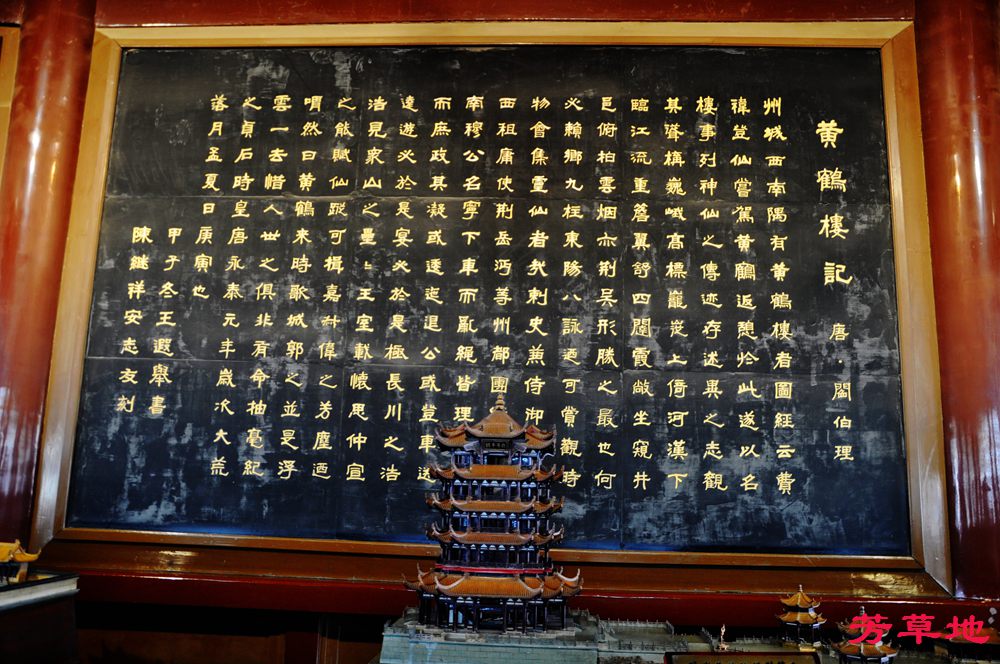 黃鶴樓記 唐·閻伯理
州城西南隅有黃鶴樓者圖經云費
禕登仙嘗駕黃鶴返憩於此遂以名
樓事列神仙之傳迹存述異之志觀
其聳構巍峨高標巃嵷上倚河漢下
臨江流重簷翼舒四闥霞敞坐窺井
邑俯拍雲烟亦荊吳形勝之最也何
必賴鄉九柱東陽八詠迺可賞觀時
物會集靈仙者哉刺史兼侍御
西祖庸使荊岳沔等州都團
南穆公名寧下車而亂繩皆理
而庶政其凝或逶迤退公或登車送
遠遊必於是宴必於是極長川之浩
浩見衆山之壘壘王室載懷思仲宣
之能賦仙蹤可揖嘉叔偉之芳塵迺
喟然曰黃鶴來時歌城郭之並是浮
雲一去惜人世之俱非有命抽毫紀
之貞石時皇唐永泰元年歲次大荒
落月孟夏日庚寅也
甲子冬王遐舉書
陳繼祥安志友刻
芳草地